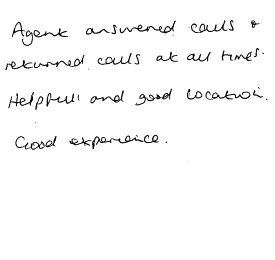 Agent answered calls &
returned calls at all times.
Helpfull and good location.
Good experience.